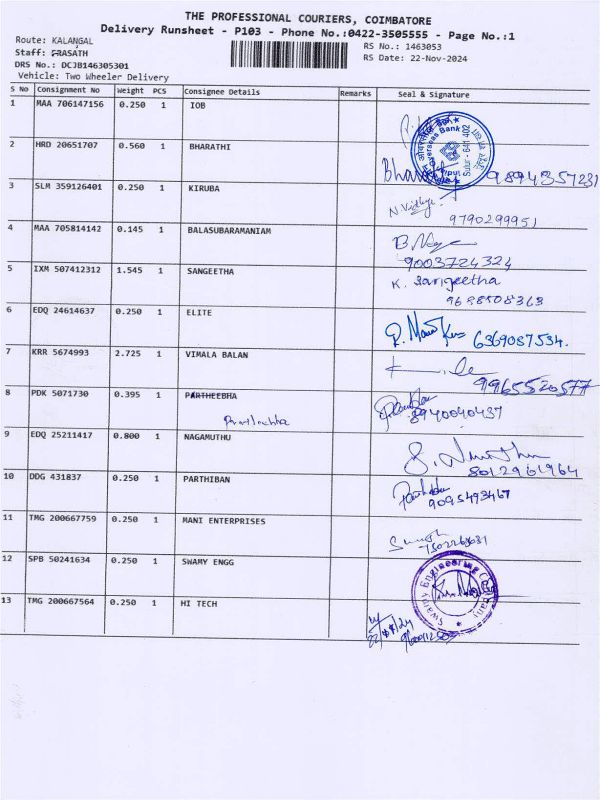 THE PROFESSIONAL COURIERS, COIMBATORE
Delivery Runsheet - P103 - Phone No.:0422-3505555 - Page No.:1
Route: KALANGAL
RS No.: 1463053
Staff: PRASATH
RS Date: 22-Nov-2024
DRS No.: DCJB146305301
Vehicle: Two Wheeler Delivery
S No Consignment No Weight PCS Consignee Details Remarks Seal & Signature
1 MAA 706147156 0.250 1 IOB
Sulur - 641 402
2 HRD 20651707 0.560 1 BHARATHI
9894357231
3 SLM 359126401 0.250 1 KIRUBA
N. Vidhya
9790299951
4 MAA 705814142 0.145 1 BALASUBARAMANIAM
9003724324
5 IXM 507412312 1.545 1 SANGEETHA
K. Sangeetha
9698508363
6 EDQ 24614637 0.250 1 ELITE
6369087534.
7 KRR 5674993 2.725 1 VIMALA BALAN
9965520577
8 PDK 5071730 0.395 1 PARTHEEBHA
8940040437
9 EDQ 25211417 0.800 1 NAGAMUTHU
8012961964
10 DDG 431837 0.250 1 PARTHIBAN
9095493467
11 TMG 200667759 0.250 1 MANI ENTERPRISES
12 SPB 50241634 0.250 1 SWAMY ENGG
Swamy Engineering Company
13 TMG 200667564 0.250 1 HI TECH